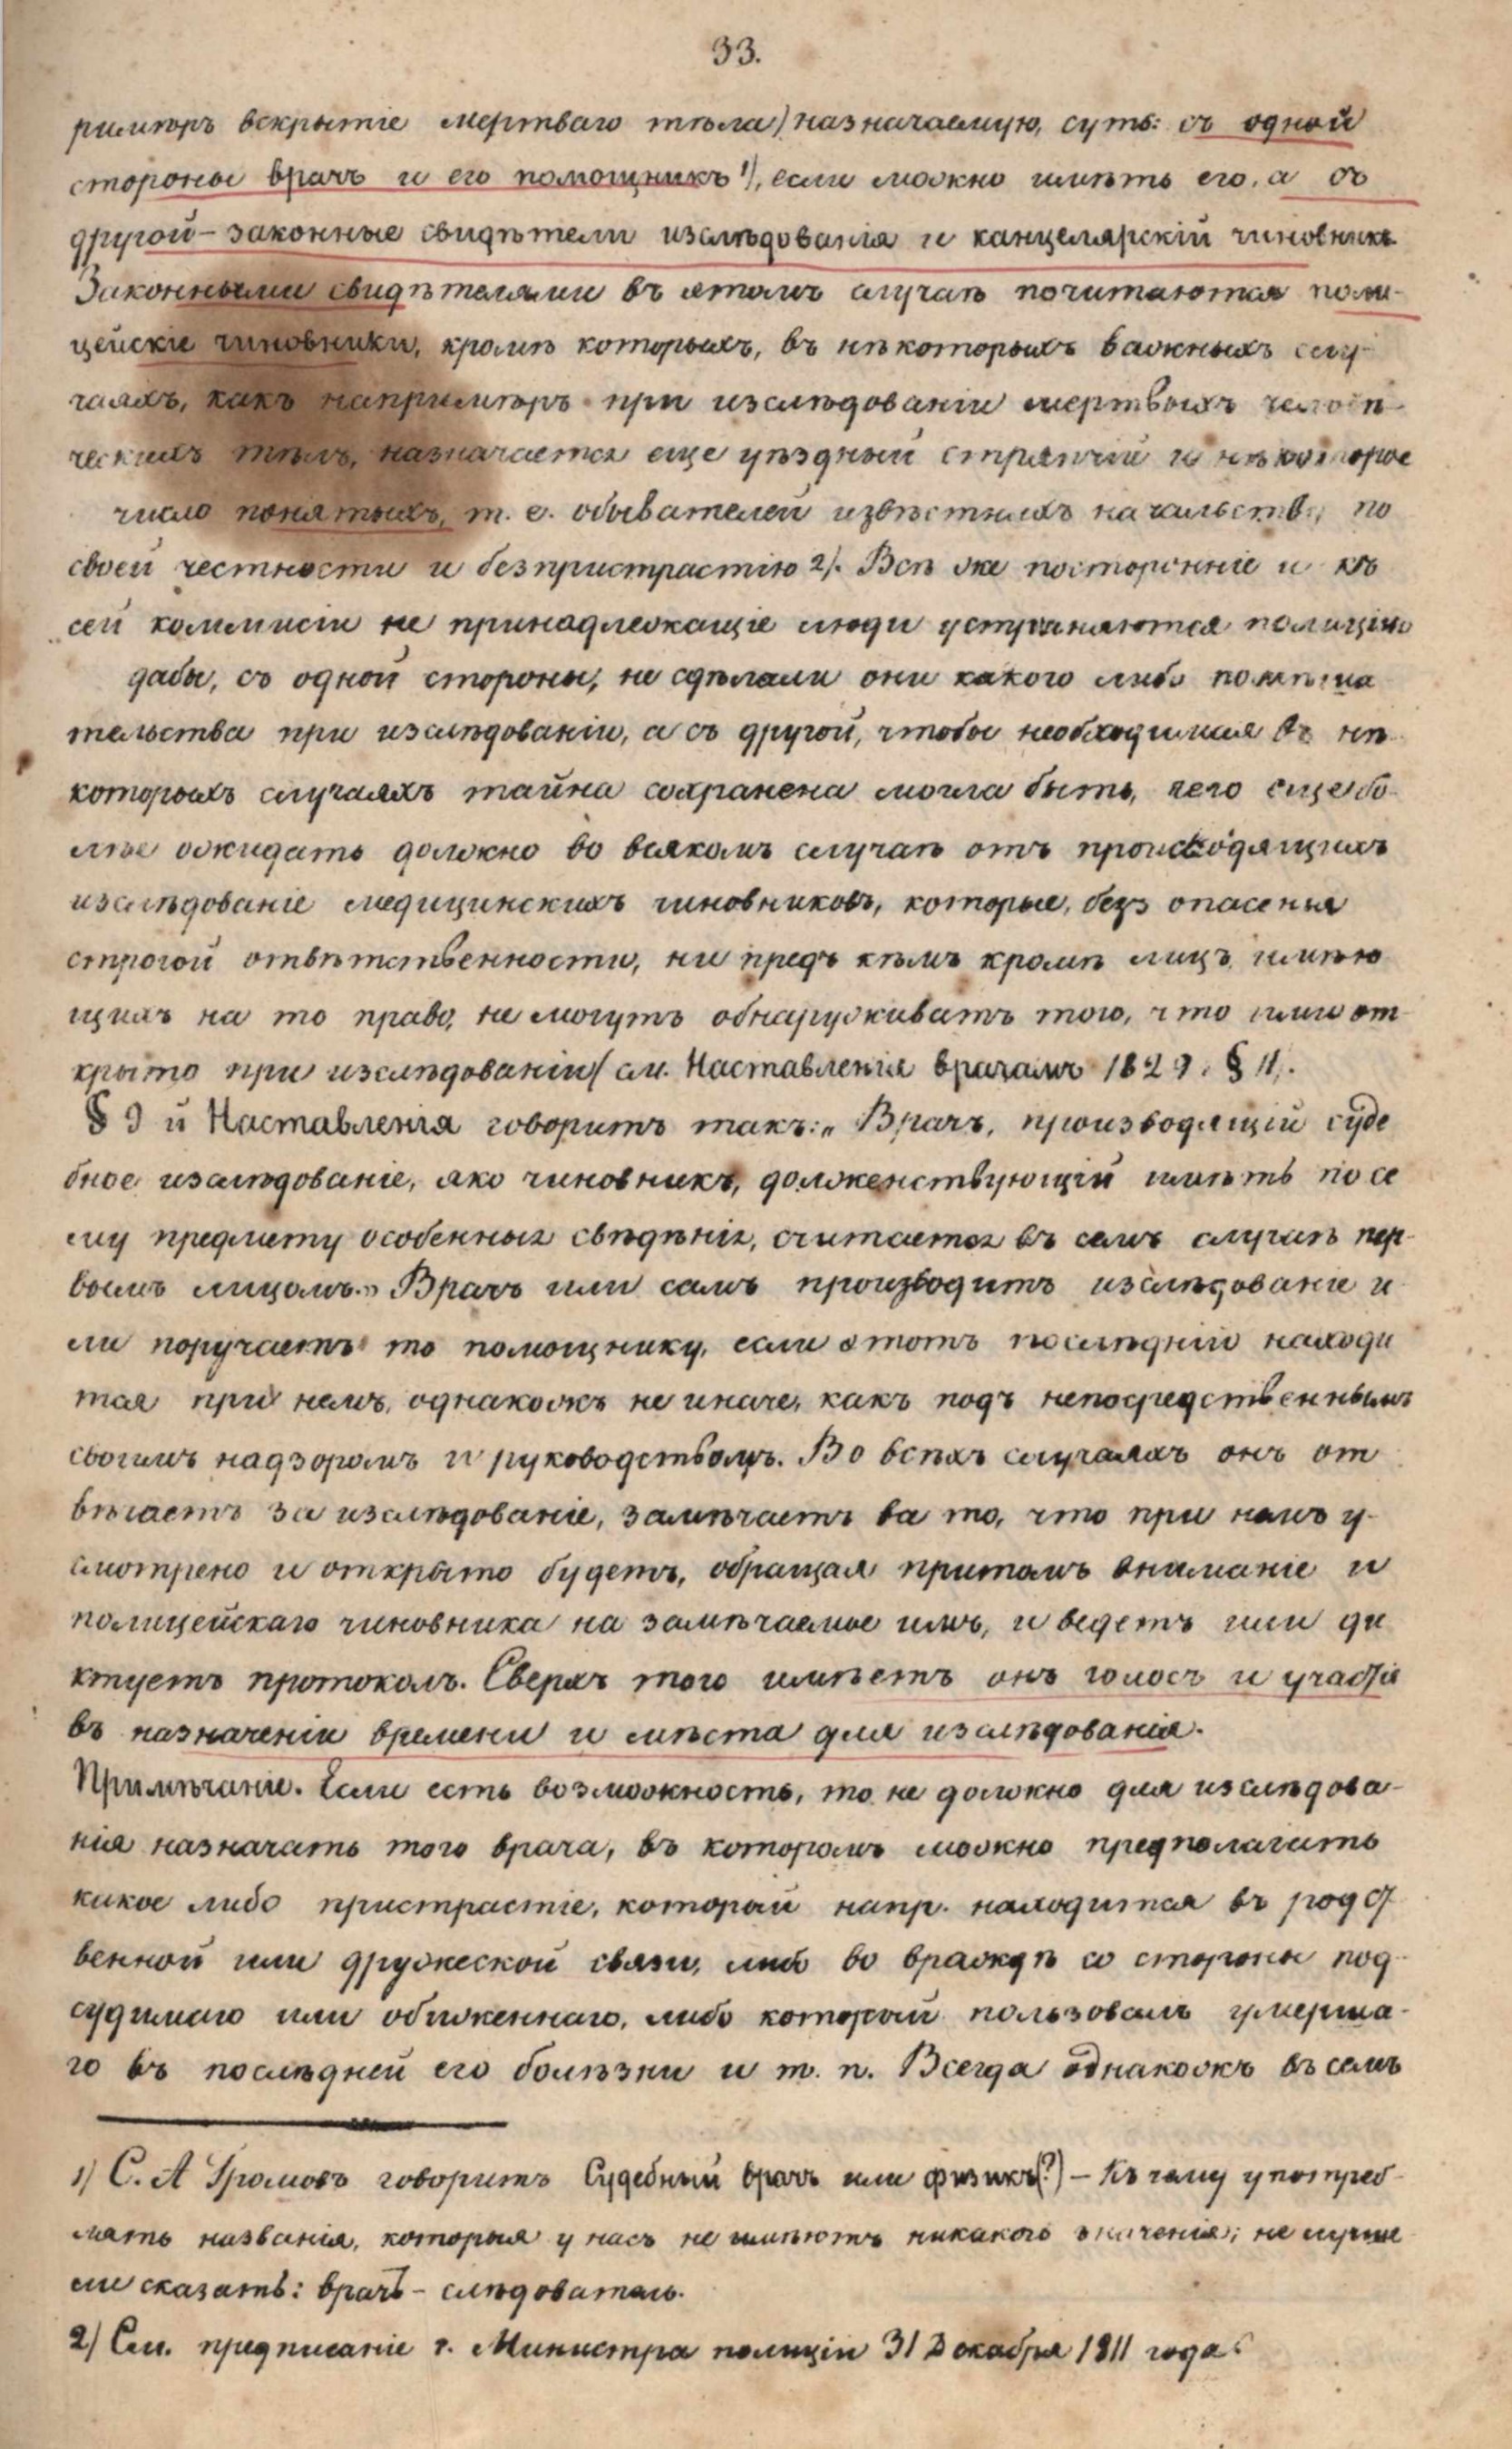 33.
римѣръ вскрытіе мертваго тѣла) назначаемую, суть: съ одной
стороны врачъ и его помощникъ ¹), если можно имѣть его, а съ
другой – законные свидѣтели изслѣдованія и канцелярскій чиновникъ.
Законными свидѣтелями въ этомъ случаѣ почитаются поли-
цейскіе чиновники, кромѣ которыхъ, въ нѣкоторыхъ важныхъ слу-
чаяхъ, какъ напримѣръ при изслѣдованіи мертвыхъ человѣ-
ческихъ тѣлъ, назначается еще уѣздный стряпчій и нѣкоторое
число понятыхъ, т. е. обывателей извѣстныхъ начальству по
своей честности и безпристрастію 2). Всѣ же посторонніе и къ
сей коммисіи не принадлежащіе люди устраняются полиціею
дабы, съ одной стороны, не сдѣлали они какого либо помѣша
тельства при изслѣдованіи, а съ другой, чтобы необходимая въ нѣ-
которыхъ случаяхъ тайна сохранена могла быть, чего еще бо-
лѣе ожидать должно во всякомъ случаѣ отъ происходящихъ
изслѣдованіе медицинскихъ чиновниковъ, которые, безъ опасенія
строгой отвѣтственности, ни предъ кѣмъ кромѣ лицъ имѣю
щихъ на то право, не могутъ обнаруживать того, что ими от
крыто при изслѣдованіи (см. Наставленія врачамъ 1829. § 11.
§ 9 й Наставленія говоритъ такъ: „Врачъ, производящій суде
бное изслѣдованіе, яко чиновникъ, долженствующій имѣть по се
му предмету особенныя свѣдѣнія, считается въ семъ случаѣ пер-
вымъ лицомъ.” Врачъ или самъ производитъ изслѣдованіе и
ли поручаетъ то помощнику, если этотъ послѣдній находи
тся при немъ, однакожъ не иначе, какъ подъ непосредственнымъ
своимъ надзоромъ и руководствомъ. Во всѣхъ случаяхъ онъ от
вѣчаетъ за изслѣдованіе, замѣчаетъ ва то, что при немъ у-
смотрено и открыто будетъ, обращая притомъ вниманіе и
полицейскаго чиновника на замѣчаемое имъ, и ведетъ или ди
ктуетъ протоколъ. Сверхъ того имѣетъ онъ голосъ и участіе
въ назначеніи времени и мѣста для изслѣдованія.
Примѣчаніе. Если есть возможность, то не должно для изслѣдова-
нія назначать того врача, въ которомъ можно предполагать
какое либо пристрастіе, который напр. находится въ родст
венной или дружеской связи, либо во враждѣ со стороны под-
судимаго или обиженнаго, либо который пользовалъ умерша-
го въ послѣдней его болѣзни и т. п. Всегда однакожъ въ семъ
1) С. А Громовъ говоритъ Судебный врачъ или физикъ(?) – Къ чему употреб-
лять названія, которыя у насъ не имѣютъ никакого значенія; не лучше
ли сказать: врачъ – слѣдователь.
2) См. предписаніе г. Министра полиціи 31 Декабря 1811 года.